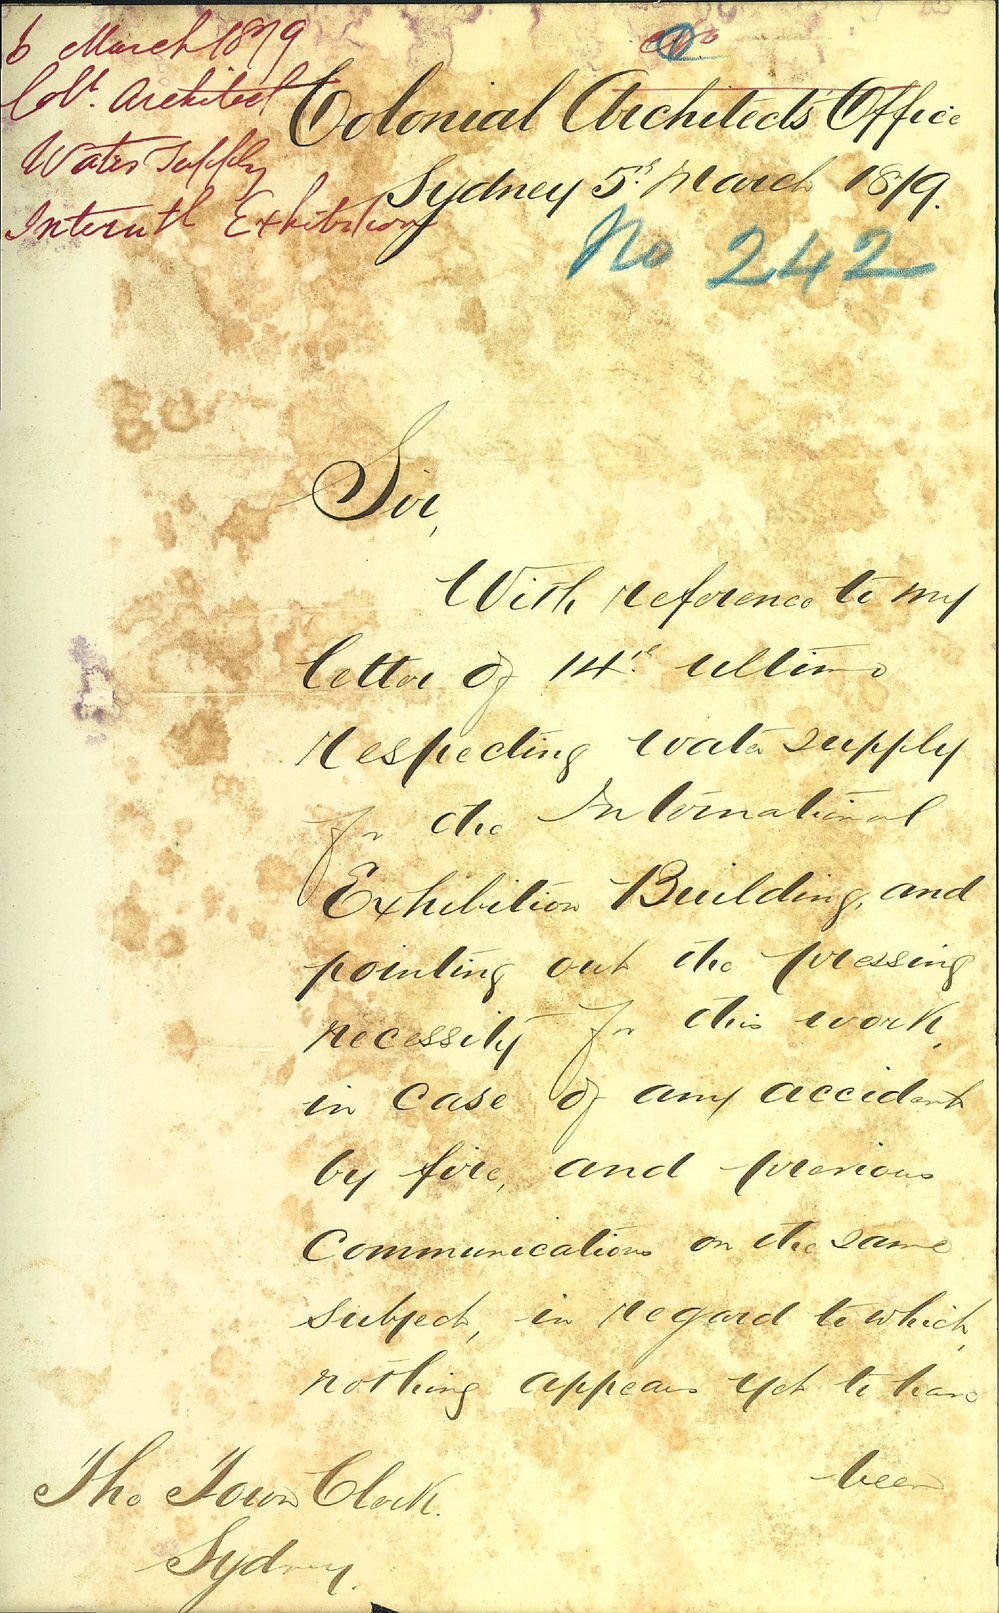 6 March 1879
Col<sup>l</sup>. Architect
Water Supply
Internatl Exhibition
Colonial Architects Office
Sydney 5th March 1879.
No 242
Sir,
With reference to my
letter of 14th ultimo
respecting water supply
for the International
Exhibition Building, and
pointing out the pressing
necessity for this work,
in case of any accident
by fire, and previous
communications on the same
subject, in regard to which,
nothing appears yet to have
been
The Town Clerk.
Sydney.